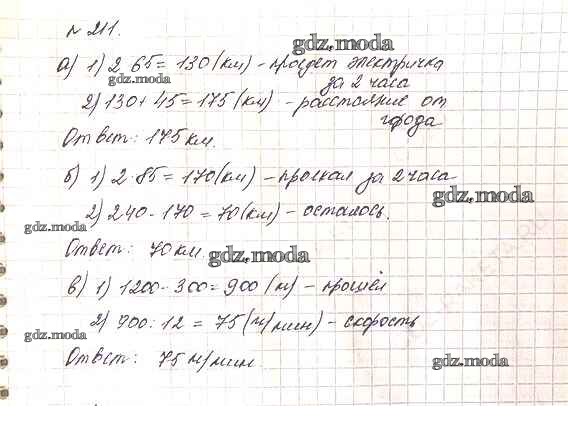 № 211.
gdz.moda
а) 1) 2·65 = 130 (км) - проедет электричка
gdz.moda
за 2 часа
2) 130 + 45 = 175 (км) - расстояние от
города
Ответ: 175 км.
б) 1) 2·85 = 170 (км) - проехал за 2 часа
gdz.moda
2) 240 - 170 = 70 (км) - осталось.
gdz.moda
Ответ: 70 км.
gdz.moda
в) 1) 1200 - 300 = 900 (м) - прошёл
2) 900 : 12 = 75 (м/мин) - скорость
gdz.moda
Ответ: 75 м/мин.
gdz.moda